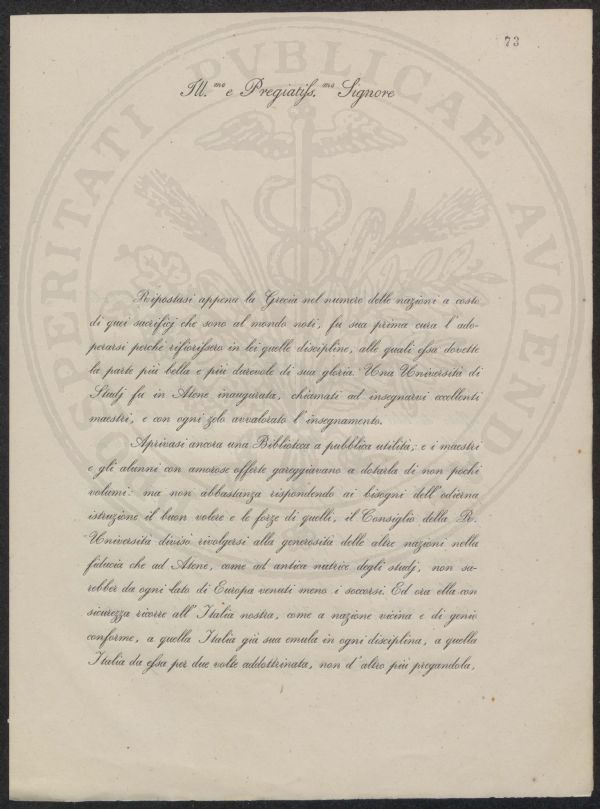 73
Ill.mo e Pregiatiss.mo Signore
Ripostasi appena la Grecia nel numero delle nazioni a costo
di quei sacrificj che sono al mondo noti, fu sua prima cura l'ado-
perarsi perchè rifiorissero in lei quelle discipline, alle quali essa dovette
la parte più bella e più durevole di sua gloria. Una Università di
Studj fu in Atene inaugurata, chiamati ad insegnarvi eccellenti
maestri, e con ogni zelo avvalorato l'insegnamento.
Aprivasi ancora una Biblioteca a pubblica utilità; e i maestri
e gli alunni con amorose offerte gareggiavano a dotarla di non pochi
volumi: ma non abbastanza rispondendo ai bisogni dell'odierna
istruzione il buon volere e le forze di quelli, il Consiglio della R.
Università divisò rivolgersi alla generosità delle altre nazioni nella
fiducia che ad Atene, come ad antica nutrice degli studj, non sa-
rebber da ogni lato di Europa venuti meno i soccorsi. Ed ora ella con
sicurezza ricorre all'Italia nostra, come a nazione vicina e di genio
conforme, a quella Italia già sua emula in ogni disciplina, a quella
Italia da essa per due volte addottrinata, non d'altro più pregandola,
PROSPERITATI PVBLICAE AVGEND